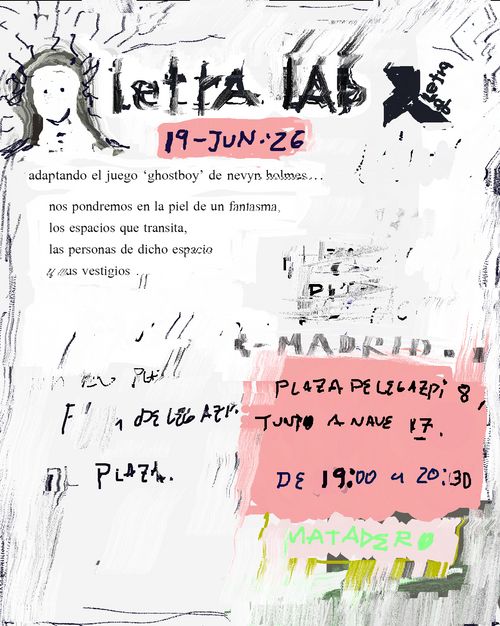 letra lAb
letra lab
19-JUN.'26
adaptando el juego ‘ghostboy’ de nevyn holmes...
nos pondremos en la piel de un fantasma,
los espacios que transita,
las personas de dicho espacio
y sus vestigios
MADRID.
PLAZA DE LEGAZPi 8,
JUNTO A NAVE 17.
DE LEGAZPI.
PLAZA.
DE 19:00 a 20:30
MATADERO